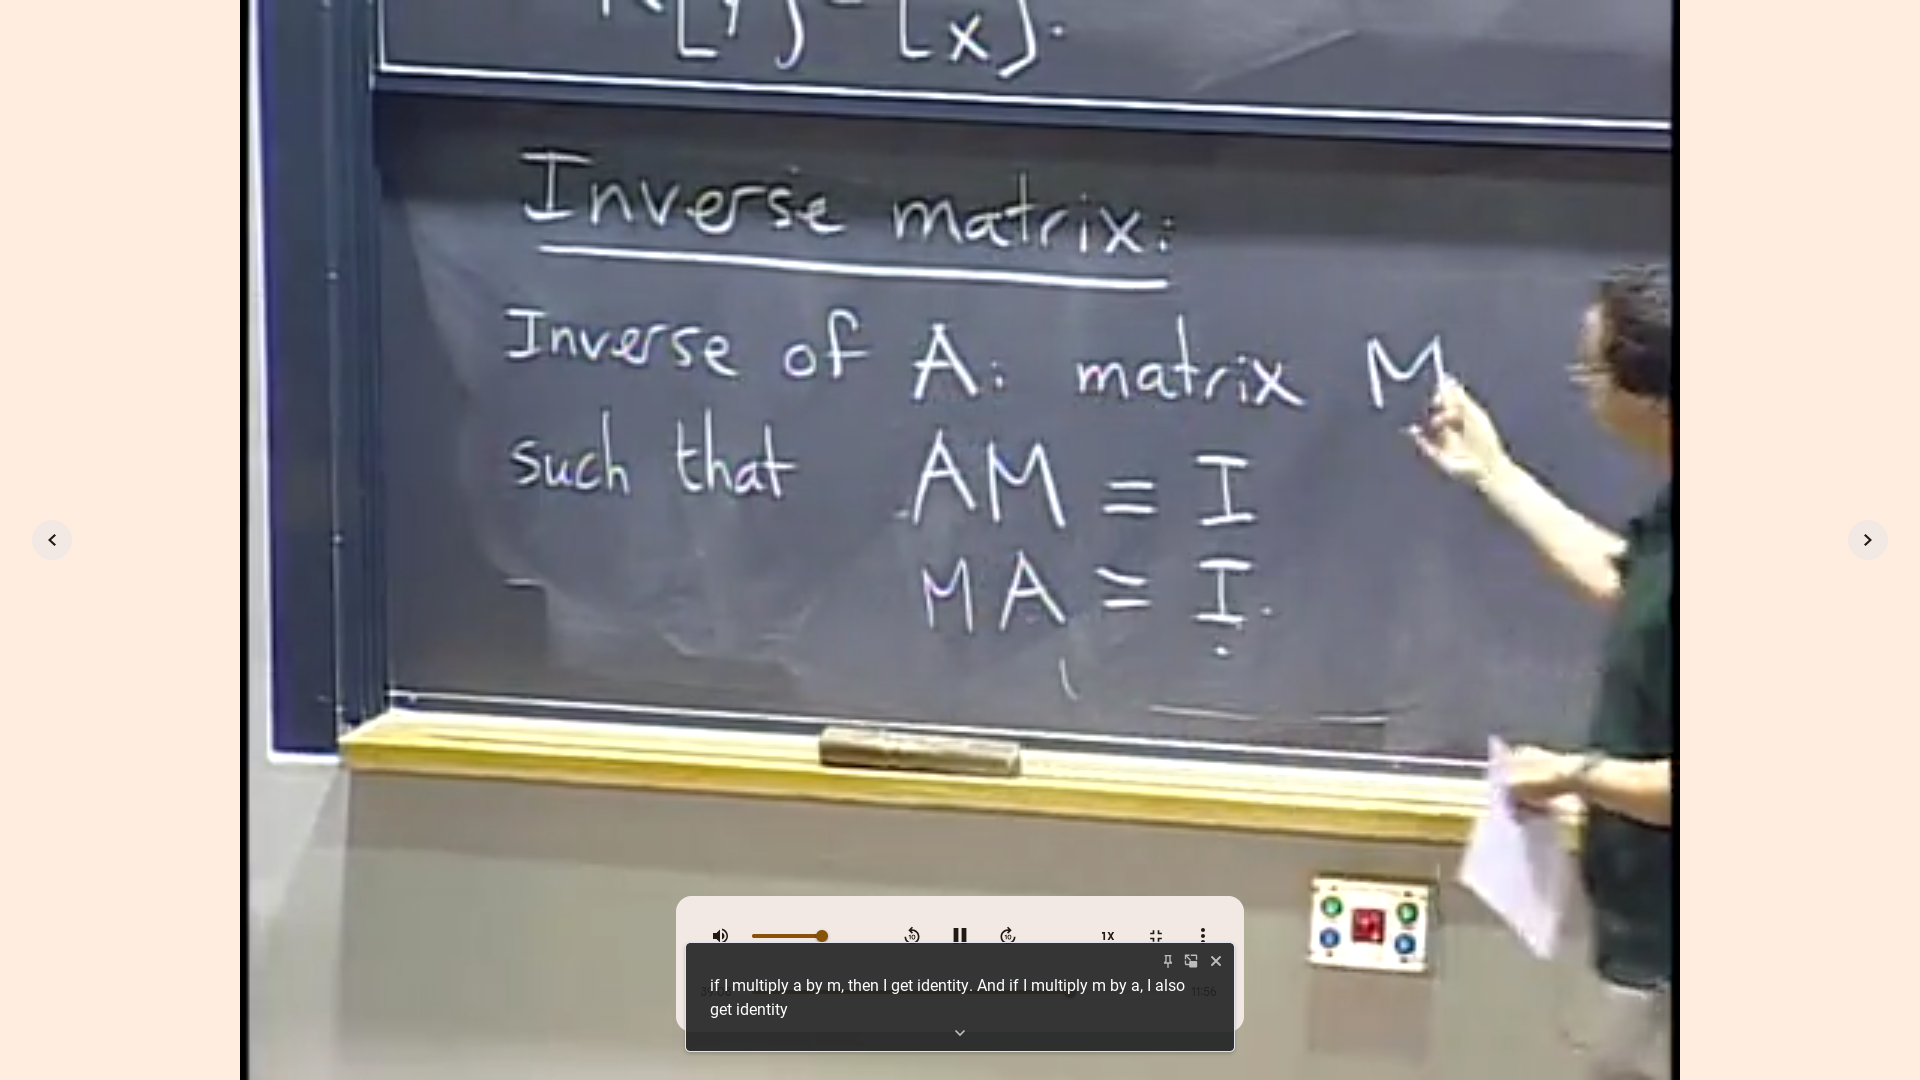 [x].
Inverse matrix:
Inverse of A: matrix M
such that AM = I
MA = I.
1X
if I multiply a by m, then I get identity. And if I multiply m by a, I also
get identity